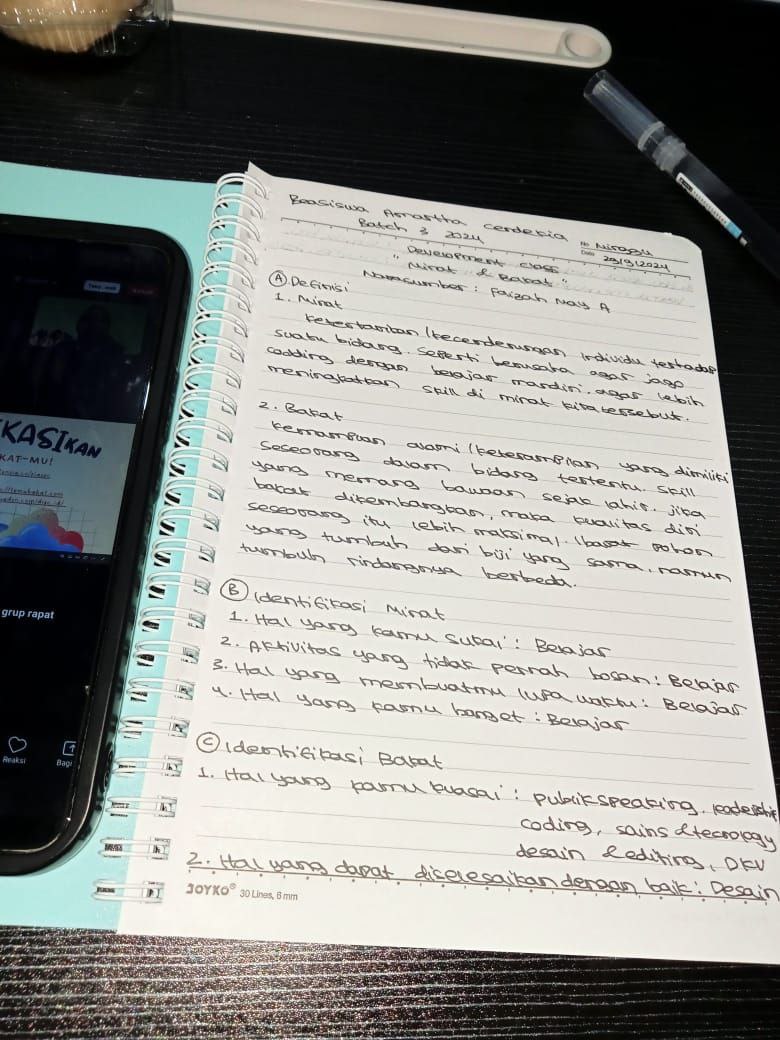 KASIKAN
KAT-MU!
grup rapat
Reaksi
Bagi
Beasiswa Amartha Cendekia
Batch 3 2024
No Minggu
Date 29/9/2024
"Development class
Minat & Bakat"
Narasumber : Faizah Nay A
A Definisi
1. Minat
Ketertarikan/kecenderungan individu terhadap
suatu bidang. Seperti berusaha agar jago
codding dengan belajar mandiri agar lebih
meningkatkan skill di minat kita tersebut.
2. Bakat
Kemampuan alami/keterampilan yang dimiliki
seseorang dalam bidang tertentu. Skill
yang memang bawaan sejak lahir. Jika
bakat dikembangkan, maka kualitas diri
seseorang itu lebih maksimal. Ibarat pohon
yang tumbuh dari biji yang sama, namun
tumbuh rindangnya berbeda.
B Identifikasi Minat
1. Hal yang kamu sukai : Belajar
2. Aktivitas yang tidak pernah bosan : Belajar
3. Hal yang membuatmu lupa waktu : Belajar
4. Hal yang kamu banget : Belajar
C Identifikasi Bakat
1. Hal yang kamu kuasai : publikspeaking, leadership
coding, sains & tecnology
desain & editing, DKV
2. Hal yang dapat diselesaikan dengan baik : Desain
JOYKO® 30 Lines, 6 mm